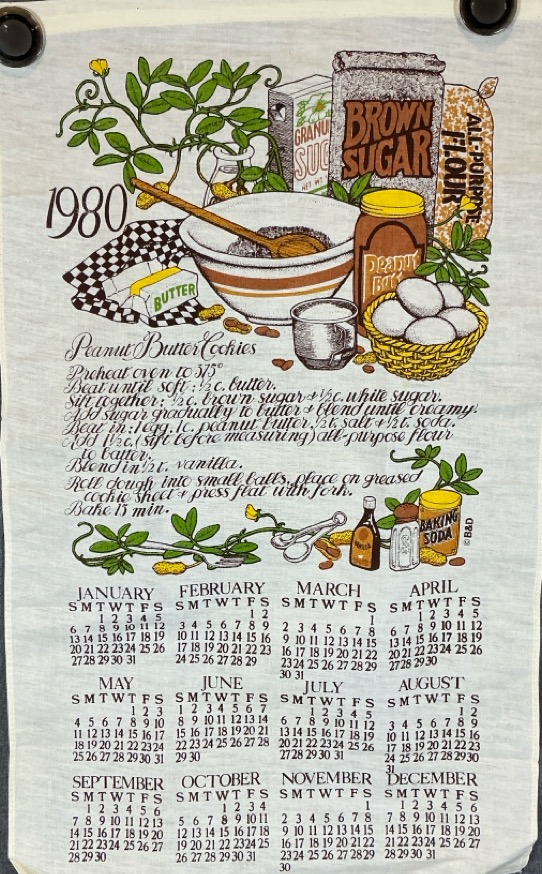 GRANU
SUG
NET WT
BROWN
SUGAR
ALL-PURPOSE
FLOUR
1980
Peanut
Butt
BUTTER
Peanut Butter Cookies
Preheat oven to 375°
Beat until soft: ½ c. butter.
Sift together: ½ c. brown sugar + ½ c. white sugar.
Add sugar gradually to butter + blend until creamy.
Beat in: 1 egg, 1c. peanut butter, ½ t. salt + ½ t. soda.
Add 1½ c. (sift before measuring) all-purpose flour
to batter.
Blend in ½ t. vanilla.
Roll dough into small balls, place on greased
cookie sheet + press flat with fork.
Bake 15 min.
VANILLA
BAKING
SODA
©B&D
JANUARY
S M T W T F S
1 2 3 4 5
6 7 8 9 10 11 12
13 14 15 16 17 18 19
20 21 22 23 24 25 26
27 28 29 30 31
FEBRUARY
S M T W T F S
1 2
3 4 5 6 7 8 9
10 11 12 13 14 15 16
17 18 19 20 21 22 23
24 25 26 27 28 29
MARCH
S M T W T F S
1
2 3 4 5 6 7 8
9 10 11 12 13 14 15
16 17 18 19 20 21 22
23 24 25 26 27 28 29
30 31
APRIL
S M T W T F S
1 2 3 4 5
6 7 8 9 10 11 12
13 14 15 16 17 18 19
20 21 22 23 24 25 26
27 28 29 30
MAY
S M T W T F S
1 2 3
4 5 6 7 8 9 10
11 12 13 14 15 16 17
18 19 20 21 22 23 24
25 26 27 28 29 30 31
JUNE
S M T W T F S
1 2 3 4 5 6 7
8 9 10 11 12 13 14
15 16 17 18 19 20 21
22 23 24 25 26 27 28
29 30
JULY
S M T W T F S
1 2 3 4 5
6 7 8 9 10 11 12
13 14 15 16 17 18 19
20 21 22 23 24 25 26
27 28 29 30 31
AUGUST
S M T W T F S
1 2
3 4 5 6 7 8 9
10 11 12 13 14 15 16
17 18 19 20 21 22 23
24 25 26 27 28 29 30
31
SEPTEMBER
S M T W T F S
1 2 3 4 5 6
7 8 9 10 11 12 13
14 15 16 17 18 19 20
21 22 23 24 25 26 27
28 29 30
OCTOBER
S M T W T F S
1 2 3 4
5 6 7 8 9 10 11
12 13 14 15 16 17 18
19 20 21 22 23 24 25
26 27 28 29 30 31
NOVEMBER
S M T W T F S
1
2 3 4 5 6 7 8
9 10 11 12 13 14 15
16 17 18 19 20 21 22
23 24 25 26 27 28 29
30
DECEMBER
S M T W T F S
1 2 3 4 5 6
7 8 9 10 11 12 13
14 15 16 17 18 19 20
21 22 23 24 25 26 27
28 29 30 31